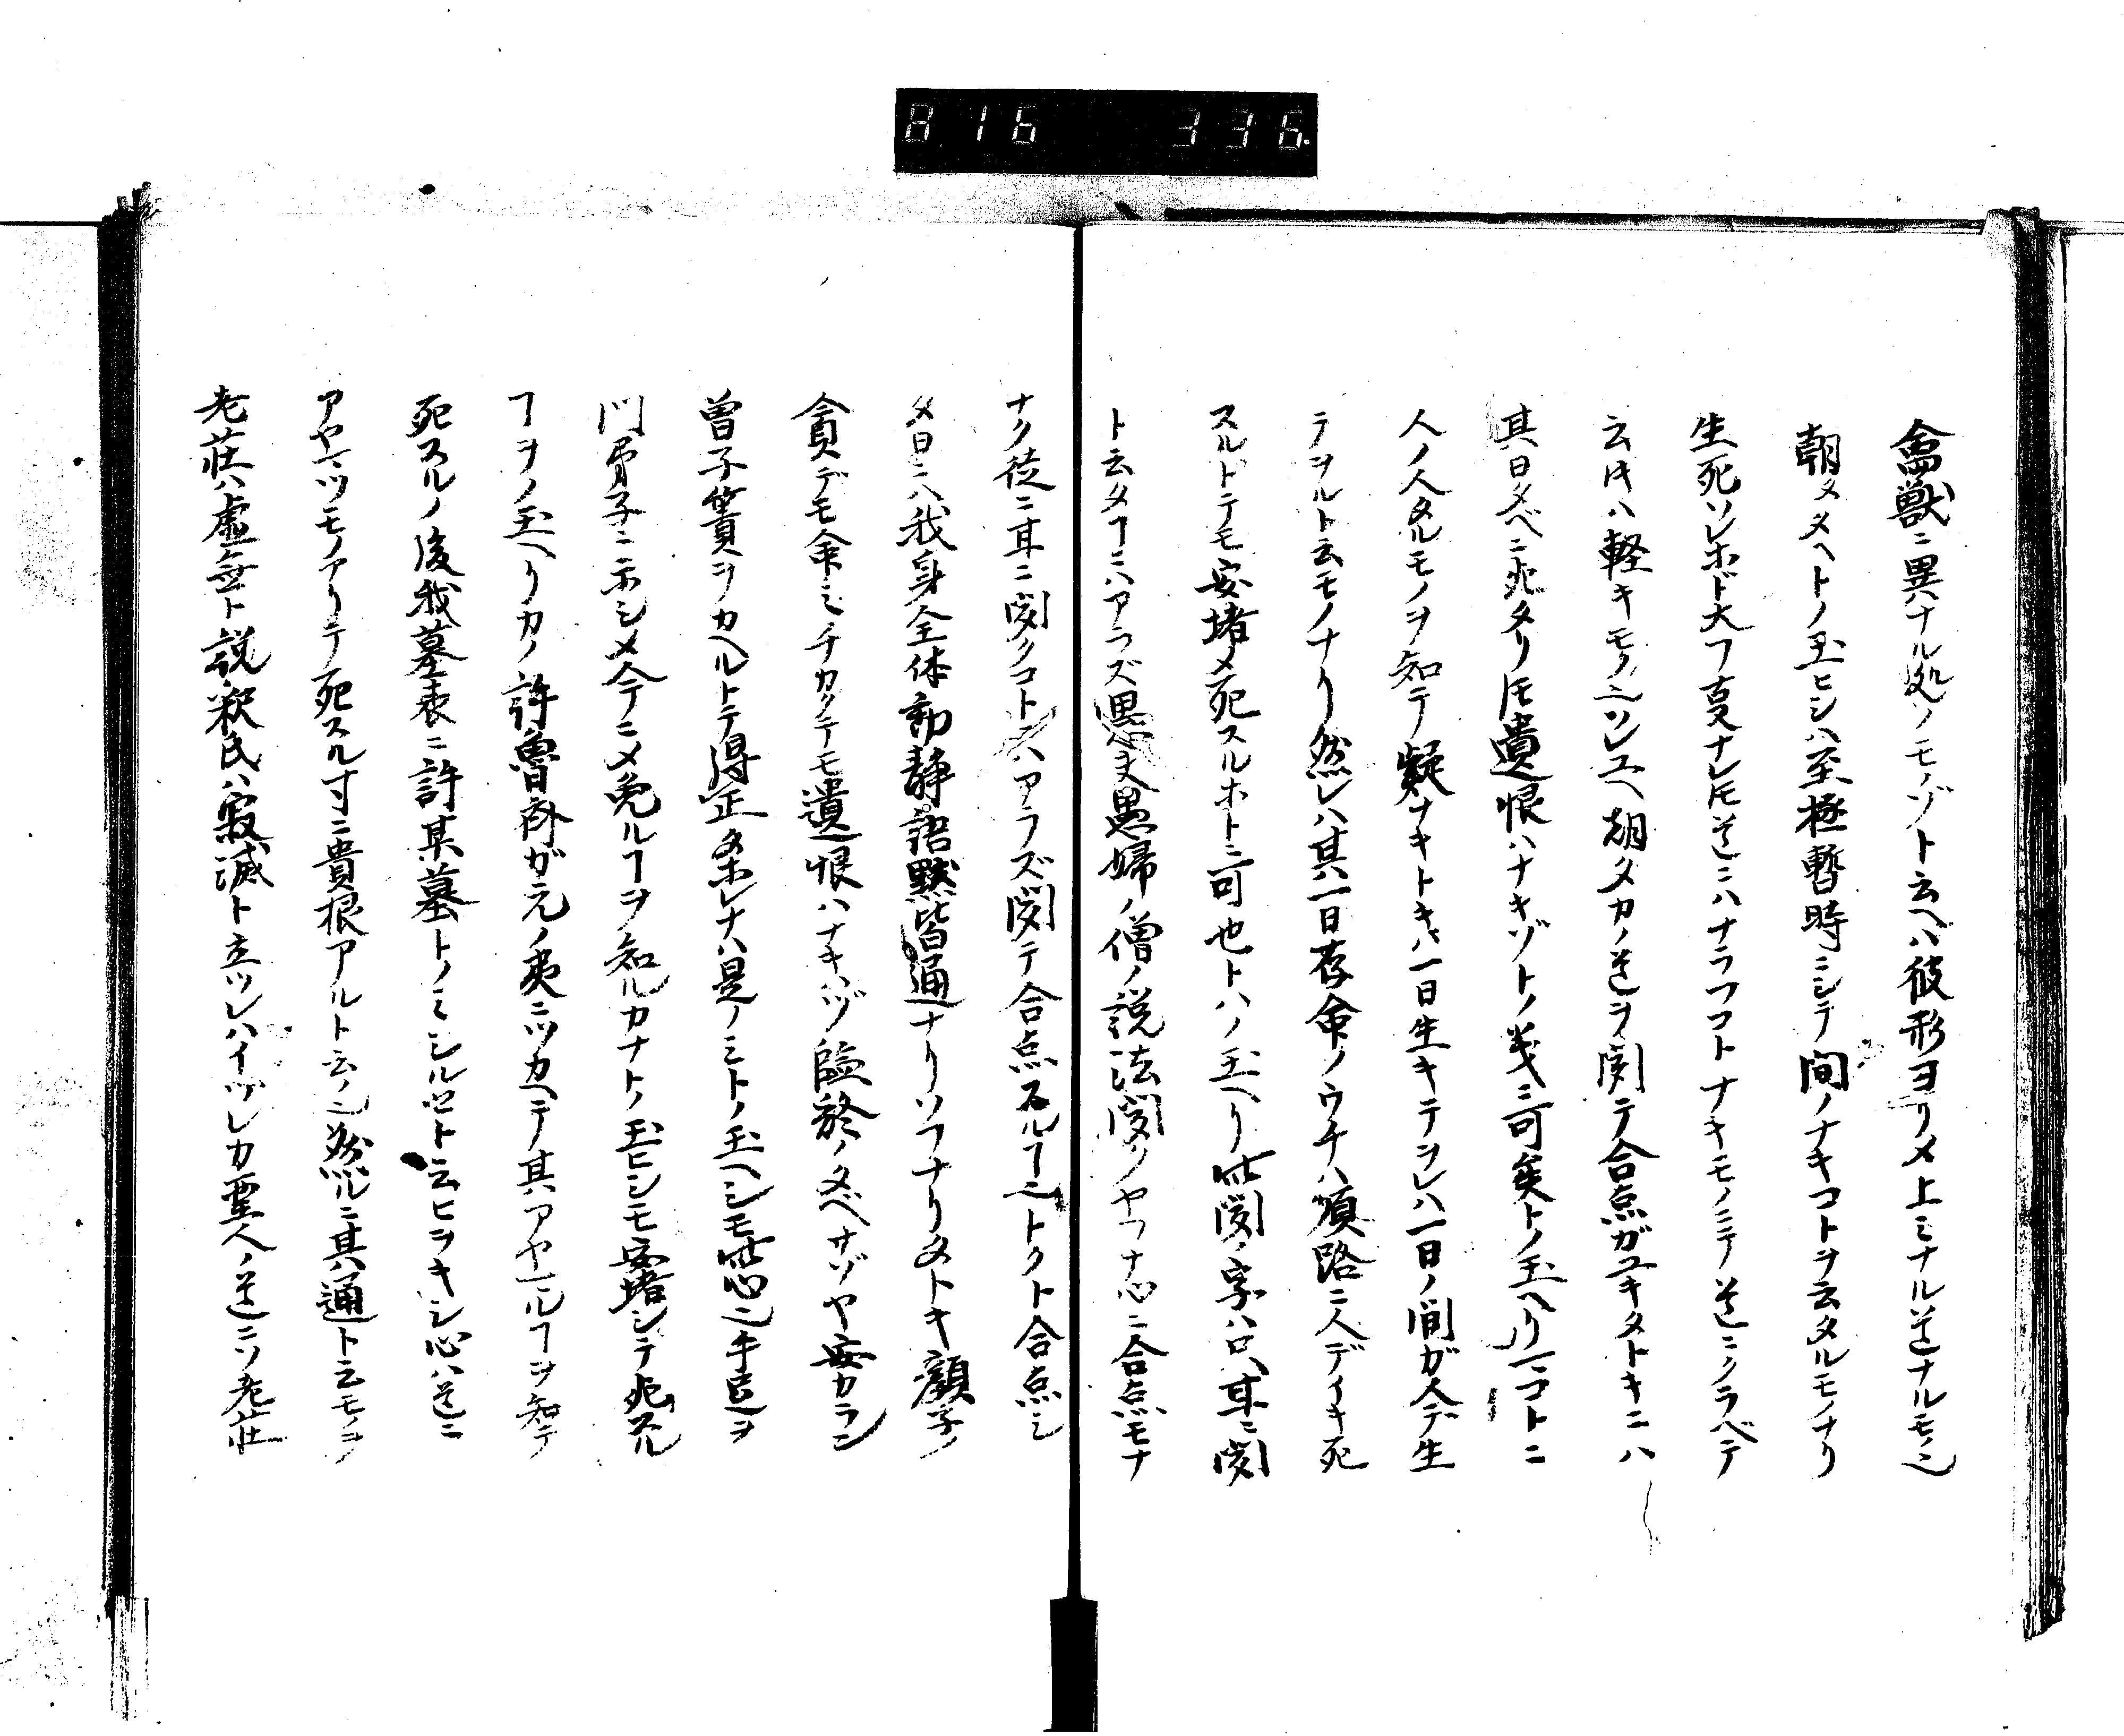 816 336.
禽獣ニ異ハナル処ソモノゾト云ヘハ彼形ヨリ〆上ミナル道ナルモノ也
朝タ〆ヘトノ玉ヒシハ至極暫時ニシテ間ノナキコトヲ云タルモノナリ
生死ソレホド大フ叓ナレ𪜈道ニハナラフコトナキモノニテ道ニクラベテ
云片ハ軽キモノ也ソレユヘ朝タカノ道ヲ聞テ合点ガユキタトキニハ
其日タベニ死タリ𪜈遺恨ハナキゾトノ義ニ可矣トノ玉ヘリ一コトニ
人ノ人タルモノヲ知テ疑ナキトキハ一日生キテヲレハ一日ノ間ガ人デ生
テヲルト云モノナリ然レハ其一日存命ノウチハ順路ニ人デイキ死
スルトテモ安堵〆死スルホトニ可也トハノ玉ヘリ此聞ノ字ハ口耳ニ聞
ト云タヿニハアラズ愚夫愚婦ノ僧ノ説法聞クヤフナ心ニ合点モナ
ナク徒ニ耳ニ聞クコトニハアラズ聞テ合点スルヿ也トクト合点シ
〆日ニハ我身全体動静語黙皆通ナリソフナリタトキ顔子ノ
貧デモ命ミチカクテモ遺恨ハナキハヅ臨終ノタベナゾヤ安カラン
曽子簀ヲカヘルトテ得正タホレナハ是ノミトノ玉ヘシモ此心也手足ヲ
門弟子ニ示シ〆今テニ〆免ルヿヲ知ルカナトノ玉ヒシモ安堵シテ死スル
ヿヲノ玉ヘリカノ許魯斎ガ元ノ夷ニツカヘテ其アヤマルヿヲ知テ
死スルノ後我墓表ニ許某墓トノミシルセト云ヒヲキシ心ハ道ニ
アヤマツモノアリテ死スル寸ニ貴根アルト云ノ也然ルニ其通ト云モノヲ
老荘ハ虚無ト説釈氏ハ寂滅ト立ツレハイツレカ聖人ノ道ニソ老荘